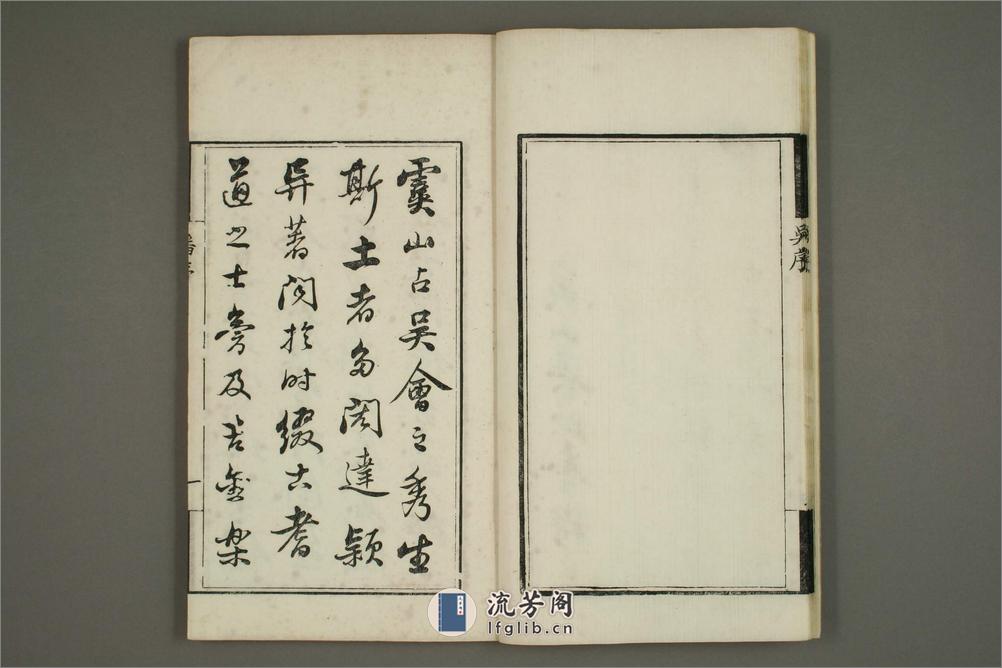 吳序
虞山占吳會之秀生
斯土者多闊達穎
異著聞於時綴古耆
道之士旁及吉金樂
流芳阁
lfglib.cn